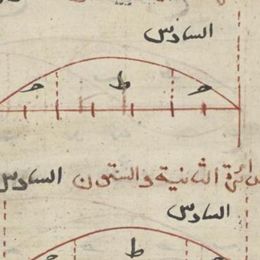 السادس
ح ط ح
دائرة الثانية والستون السادس
السادس
ط
ح ح